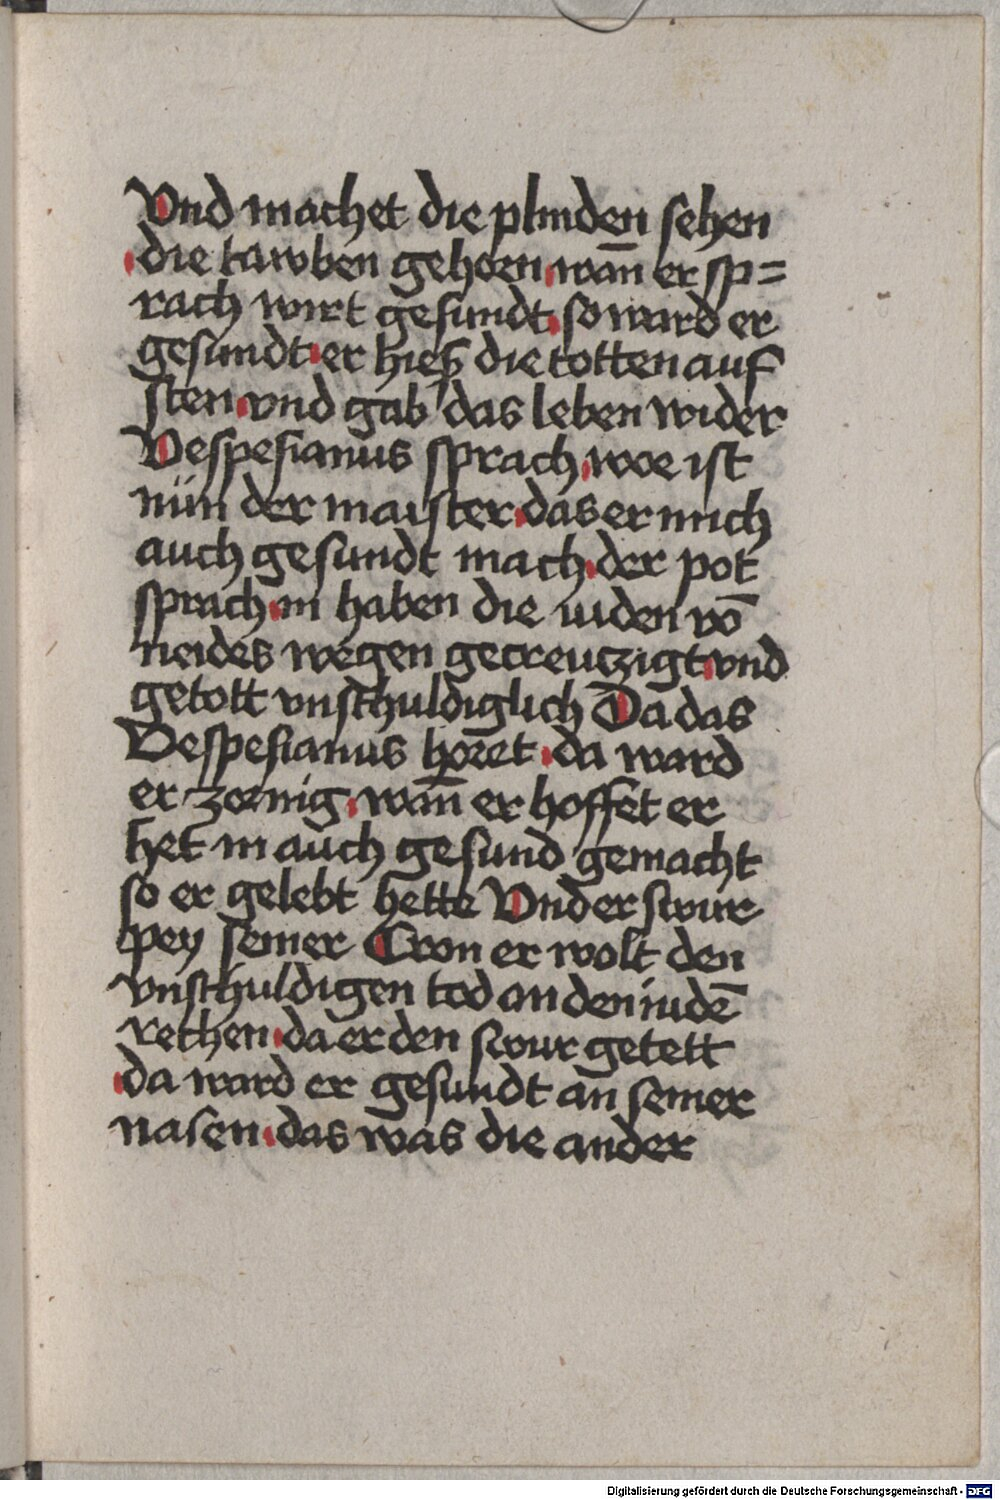 Vnd machet die plinden sehen
die tawben gehorn wan̄ er sp=
rach wirt gesundt so ward er
gesundt er hies die totten auf
sten vnd gab das leben wider
Vespesianus sprach woe ist
nün der maister das er mich
auch gesundt mach der pot
sprach in haben die iuden vō
neides wegen gecreuczigt vnd
getott vnschuldiglich Da das
Vespesianus horet da ward
er zornig wan̄ er hoffet er
het in auch gesund gemacht
so er gelebt hette Vnd er swur
pey seiner Cron er wolt den
vnschuldigen tod an den iudē
rechen da er den swur getett
da ward er gesundt an seiner
nasen das was die ander
Digitalisierung gefördert durch die Deutsche Forschungsgemeinschaft - DFG